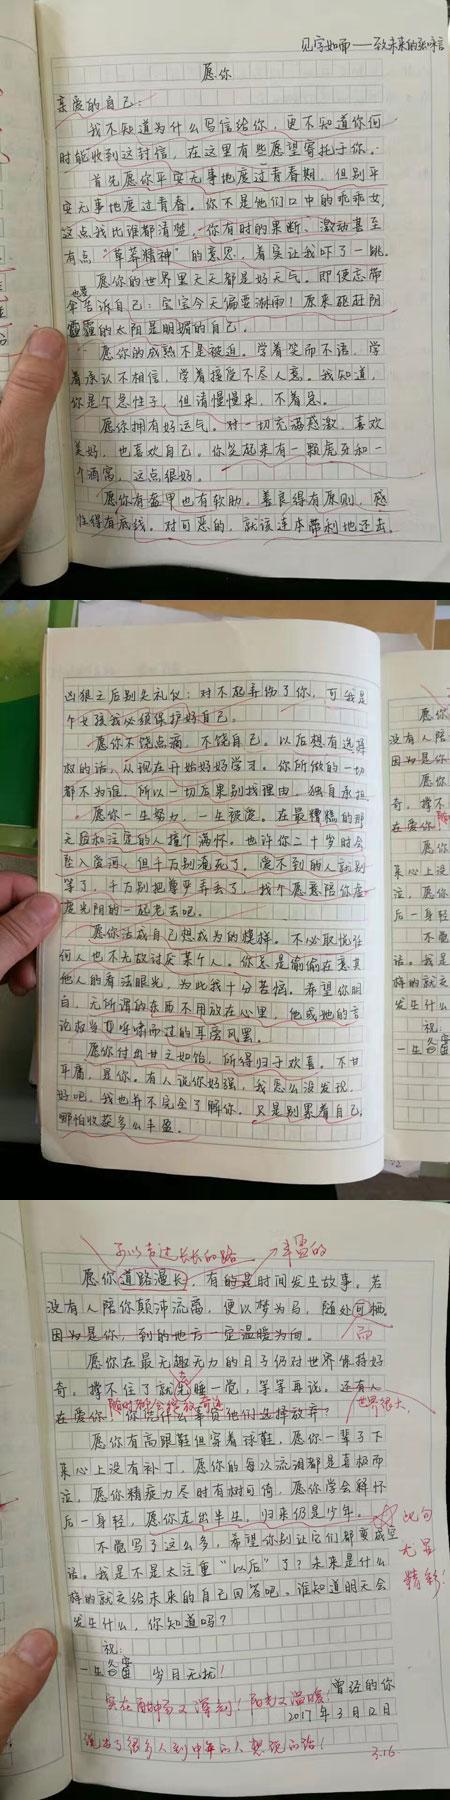 见字如面——致未来的
愿你
亲爱的自己:
我不知道为什么写信给你,更不知道你何
时能收到这封信,在这里有些愿望寄托于你。
首先愿你平安无事地度过青春期,但别平
安无事地度过青春。你不是他们口中的乖乖女,
这点我比谁都清楚,你有时的果断、激动甚至
有点“草莽精神”的意思,着实让我吓了一跳。
愿你的世界里天天都是好天气。即便忘带
伞也要告诉自己:宝宝今天偏要淋雨!原来砸赶阴
霾的太阳是明媚的自己。
愿你的成熟不是被迫。学着笑而不语,学
着承认不相信,学着接受不尽人意。我知道,
你是个急性子,但请慢慢来,不着急。
愿你拥有好运气。对一切充满感激,喜欢
美好,也喜欢自己。你笑起来有一颗虎牙和一
个酒窝,这点很好。
愿你有盔甲也有软肋。善良得有原则,感
性得有底线。对可恶的,就该连本带利地还击。
凶狠之后别失礼仪:对不起弄伤了你,可我是
个女孩我必须保护好自己。
愿你不饶点滴,不饶自己。以后想有选择
权的话,从现在开始好好学习。你所做的一切
都不为谁,所以一切后果别找理由,独自承担。
愿你一生努力,一生被爱。在最糟糕的那
天因和注定的人撞个满怀。也许你二十岁时会
坠入爱河,但千万别淹死了。爱不到的人就别
等了,千万别把尊严弄丢了,找个愿意陪你虚
度光阴的一起老去吧。
愿你活成自己想成为的模样。不必取悦任
何人也不无故讨厌某个人。你总是偷偷在意其
他人的看法眼光,为此我十分苦恼。希望你明
白,无所谓的东西不用放在心里,他或她的言
论权当更呼啸而过的耳旁风罢。
愿你付出甘之如饴,所得归于欢喜。不甘
平庸,是你。有人说你好强,我怎么没发现,
好吧,我也并不完全了解你。只是别累着自己,
哪怕收获多么丰盈。
可以方达长长的路
丰盈的
愿你道路漫长,有的是时间发生故事。若
没有人陪你颠沛流离,便以梦为马,随处可栖。
因为是你,到的地方一定温暖为向。
而
愿你在最无趣无力的日子仍对世界保持好
奇。撑不住了就去睡一觉,等等再说。还有人
随时都会绽放奇迹
世界很大,
在爱你,你凭什么辜负他们选择放弃?
愿你有高跟鞋但穿着球鞋,愿你一辈子下
来心上没有补丁,愿你的每次流泪都是喜极而
泣,愿你精疲力尽时有树可倚,愿你学会释怀
后一身轻,愿你走出半生,归来仍是少年。
此句
尤显
精彩!
不觉写了这么多,希望你别让它们都变成空
话。我是不是太注重“以后”了?未来是什么
样的就交给未来的自己回答吧。谁知道明天会
发生什么,你知道吗?
祝:
一生 岁月无扰!
曾经的你
实在 又深刻!阳光又温暖!
2017年3月12日
说出了很多人到中年的人想说的话!
3.16